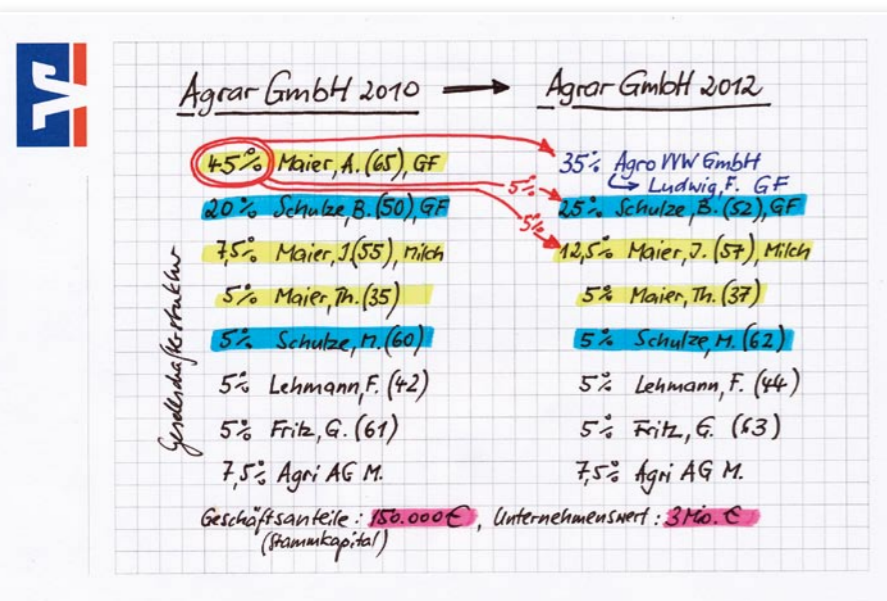 Agrar GmbH 2010 → Agrar GmbH 2012
Gesellschafterstruktur
45% Maier, A. (65), GF
20% Schulze, B. (50), GF
7,5% Maier, J. (55), Milch
5% Maier, Th. (35)
5% Schulze, M. (60)
5% Lehmann, F. (42)
5% Fritz, G. (61)
7,5% Agri AG M.
5%
5%
35% Agro VVW GmbH
Ludwig, F. GF
25% Schulze, B. (52), GF
12,5% Maier, J. (57), Milch
5% Maier, Th. (37)
5% Schulze, M. (62)
5% Lehmann, F. (44)
5% Fritz, G. (63)
7,5% Agri AG M.
Geschäftsanteile: 150.000 €, Unternehmenswert: 3 Mio. €
(Stammkapital)